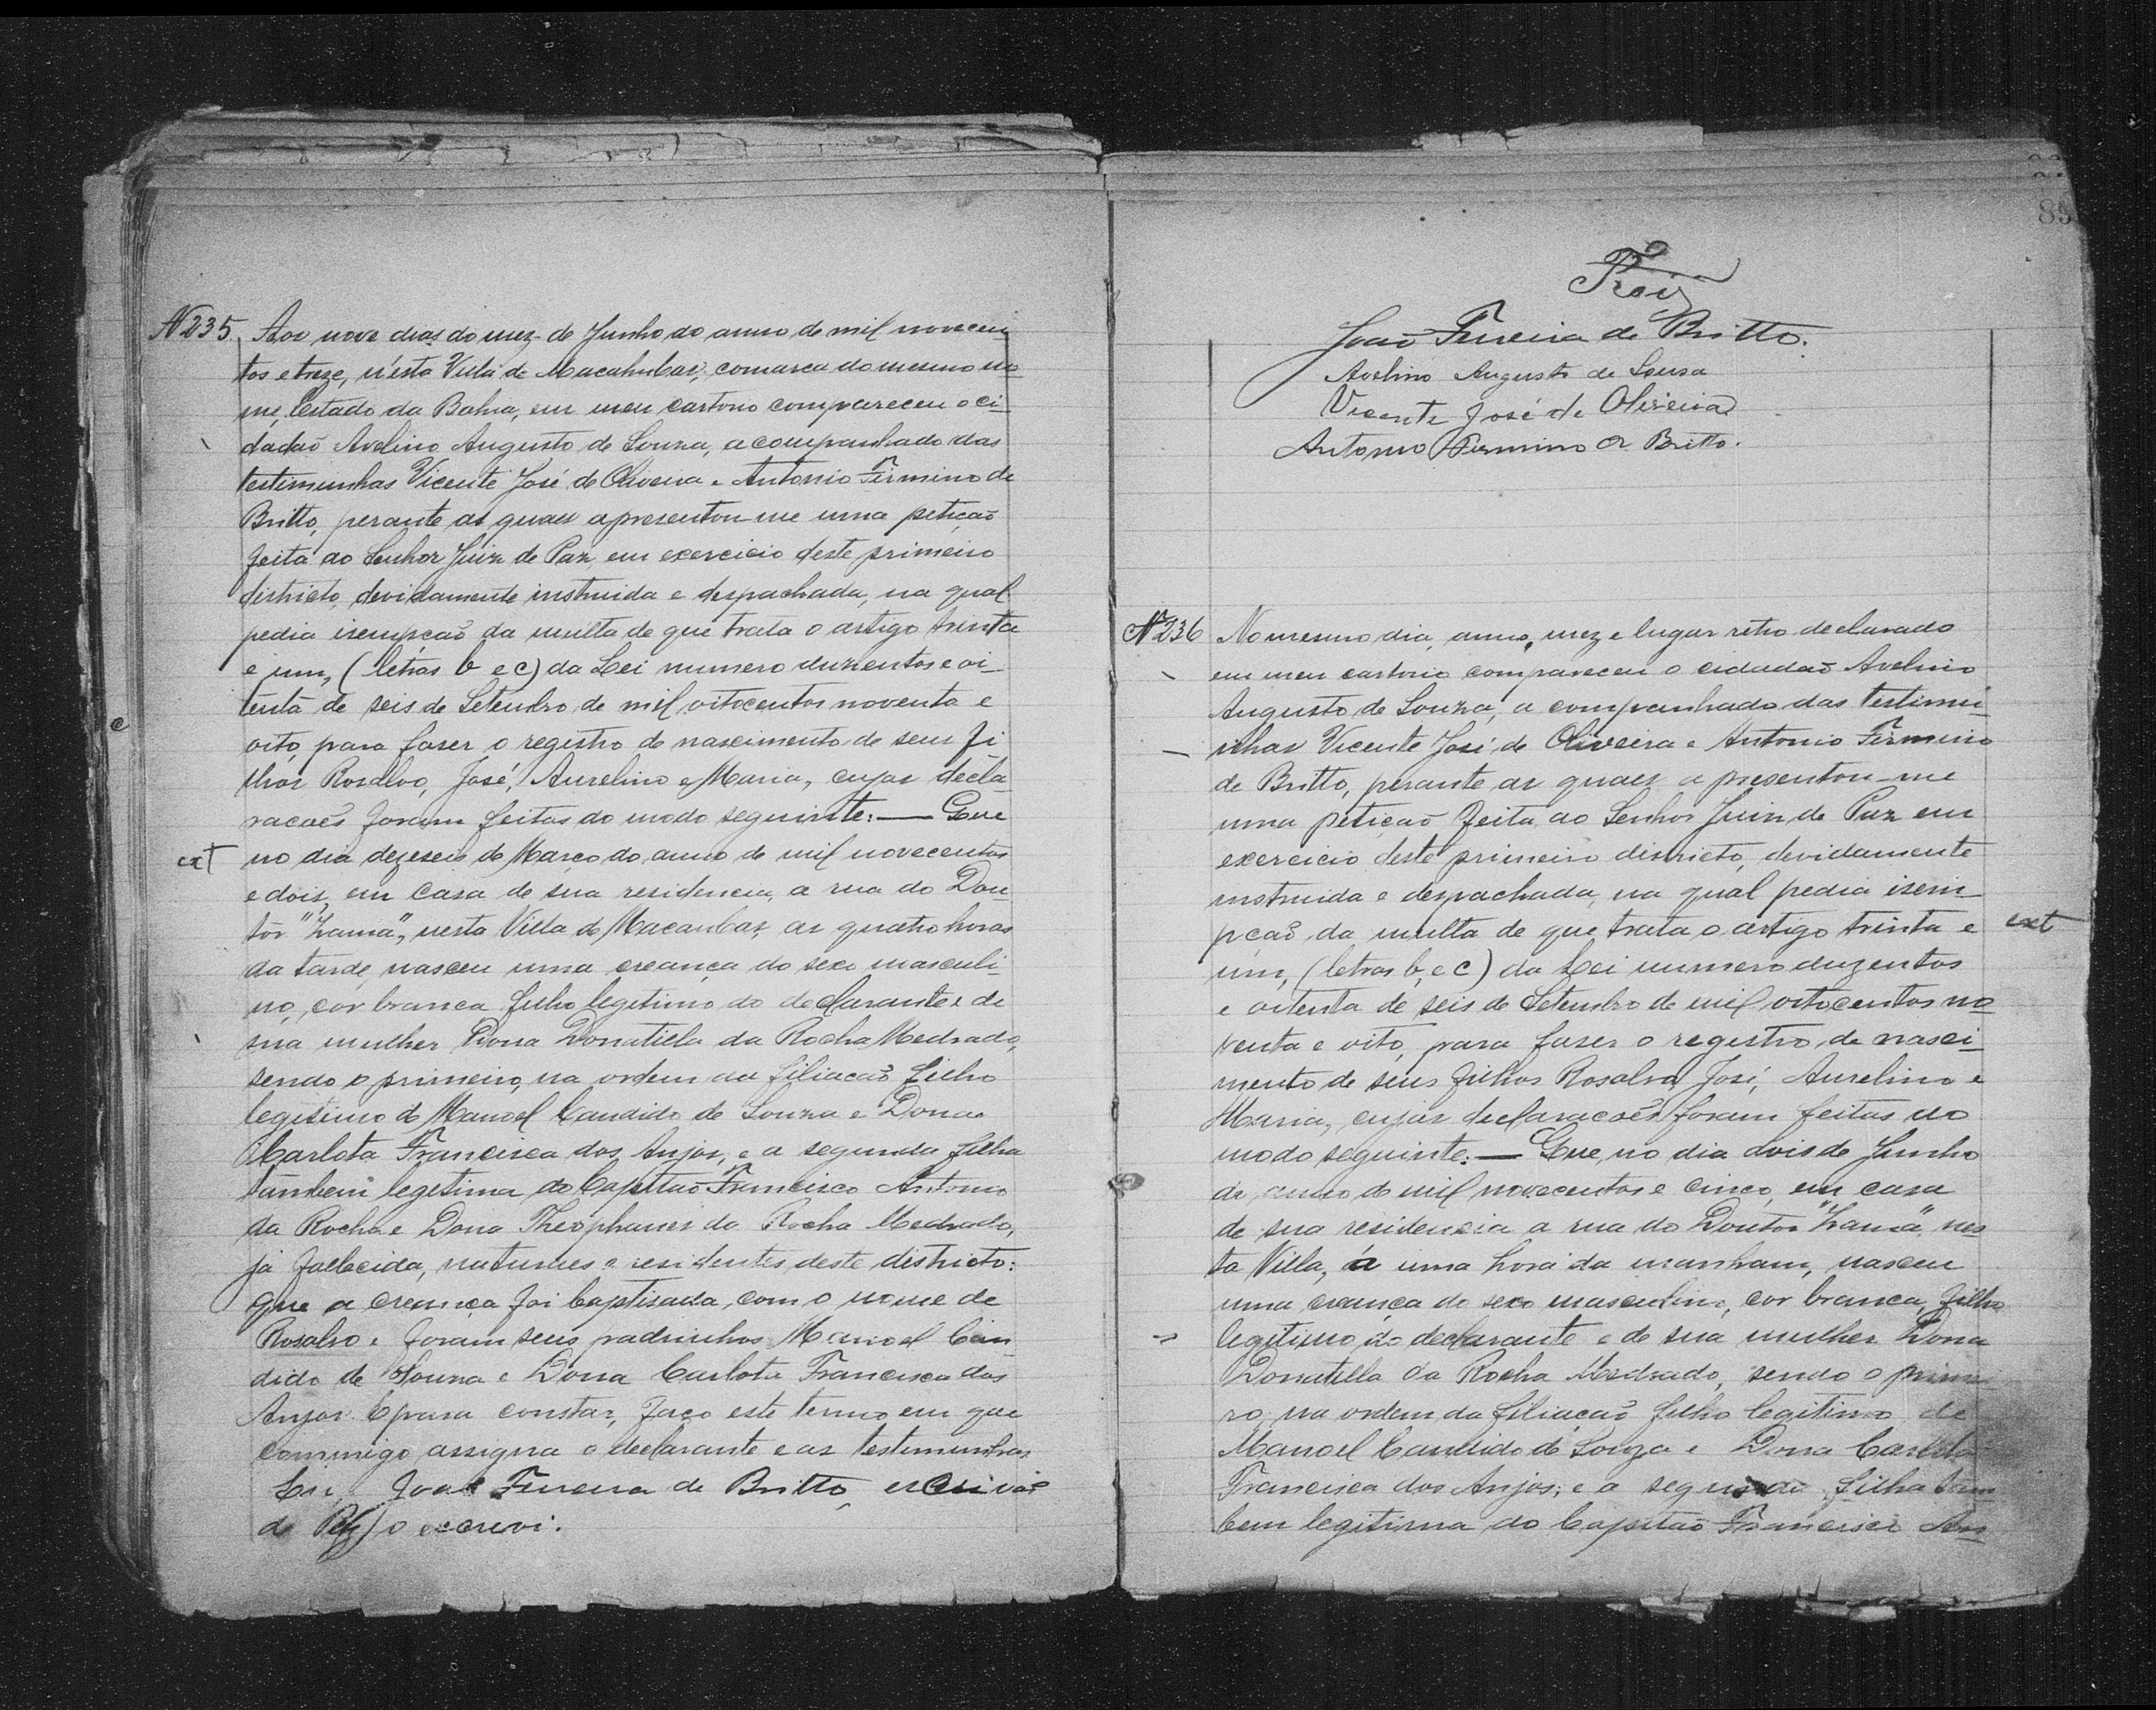 N 235. Aos nove dias do mez de Junho do anno de mil novecen-
tos e treze, n'esta Villa de Macahubas, comarca do mesmo no-
me, Estado da Bahia, em meu cartorio compareceu o ci-
dadaõ Avelino Augusto de Souza, acompanhado das
testimunhas Vicente José de Oliveira e Antonio Firmino de
Britto, perante as quaes apresentou-me uma petiçaõ
feita ao Senhor Juiz de Paz, em exercicio deste primeiro
districto, devidamente instruida e despachada, na qual
pedia isempçaõ da multa de que trata o artigo trinta
e um, (letras b e c) da Lei numero duzentos e oi-
tenta de seis de Setembro de mil oitocentos noventa e
oito, para faser o registro de nascimento de seus fi
lhos Rosalvo, José, Aurelino e Maria, cujas decla-
racoẽs foram feitas do modo seguinte: — Que
ext no dia dezeseis de Março do anno de mil novecentos
e dois, em casa de sua residencia, a rua do Dou-
tor "Lama", nesta Villa de Macaubas, as quatro horas
da tarde, nasceu uma creança do sexo masculi-
no, cor branca filho legitimo do declarante e de
sua mulher Dona Donatilla da Rocha Medrado,
sendo o primeiro, na ordem da filiacaõ filho
legitimo de Manoel Candido de Souza e Dona
Carlota Francisca dos Anjos, e a segunda filha
tambem legitima do Capitaõ Francisco Antonio
da Rocha e Dona Theophanes da Rocha Medrado,
já fallecida, naturaes e residentes deste districto:
que a creança foi baptisada, com o nome de
Rosalvo e foram seus padrinhos Manoel Can-
dido de Souza e Dona Carlota Francisca dos
Anjos. E para constar, faço este termo em que
commigo assigna o declarante e as testimunhas.
Eu, João Ferreira de Britto, escrivaõ
de Paz o escrevi.
85
João Ferreira de Britto.
Avelino Augusto de Sousa
Vicente José de Oliveira
Antonio Firmino de Britto.
Nº 236 No mesmo dia, anno, mez e lugar retro declarado
em meu cartorio compareceu o cidadaõ Avelino
Augusto de Souza, a companhado das testimu-
nhas Vicente José de Oliveira e Antonio Firmino
de Britto, perante as quaes a presentou-me
uma petiçaõ feita ao Senhor Juiz de Paz em
exercicio deste primeiro districto, devidamente
instruida e despachada, na qual pedia isem-
pcaõ da multa de que trata o artigo trinta e ext
um, (letras b, e c) da Lei numero duzentos
e oitenta de seis de Setembro de mil oitocentos no-
venta e oito, para faser o registro de nasci-
mento de seus filhos Rosalvo, José, Aurelino e
Maria, cujas declaracoẽs foram feitas no
modo seguinte: — Que, no dia dois de Junho
do anno de mil novecentos e cinco, em casa
de sua residencia a rua do Doutor "Lama" nes-
ta Villa, á uma hora da manham, nasceu
uma creança do sexo masculino, cor branca, filho
legitimo do declarante e de sua mulher Dona
Donatilla da Rocha Medrado, sendo o primei-
ro, na ordem da filiacaõ filho legitimo de
Manoel Candido de Souza e Dona Carlota
Francisca dos Anjos; e a segunda filha tam-
bem legitima do Capitaõ Francisco An-